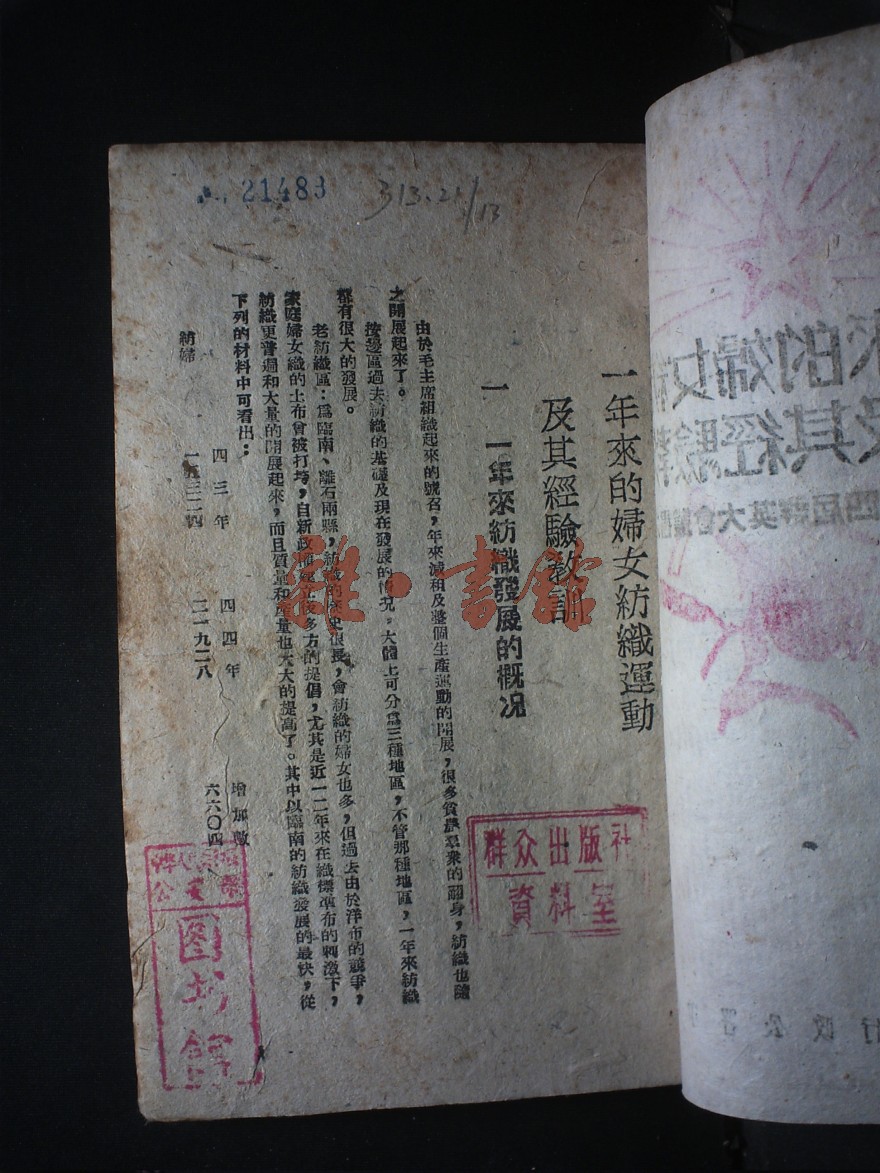 21483
313.21/13
一年來的婦女紡織運動
及其經驗教訓
一 一年來紡織發展的概況
由於毛主席組織起來的號召，年來減租及整個生產運動的開展，很多貧農羣衆的翻身，紡織也隨
之開展起來了。
按邊區過去紡織的基礎及現在發展的情況，大體上可分爲三種地區，不管那種地區，一年來紡織
都有很大的發展。
老紡織區：爲臨南、離石兩縣，紡織的歷史很長，會紡織的婦女也多，但過去由於洋布的競爭，
家庭婦女織的土布曾被打垮，自新政權建立後多方的提倡，尤其是近一二年來在織標準布的刺激下，
紡織更普遍和大量的開展起來，而且質量和產量也大大的提高了。其中以臨南的紡織發展的最快，從
下列的材料中可看出：
四三年 四四年 增加數
紡婦 一五三二四 二一九二八 六六〇四
群众出版社
資料室
图书館
雅·書館